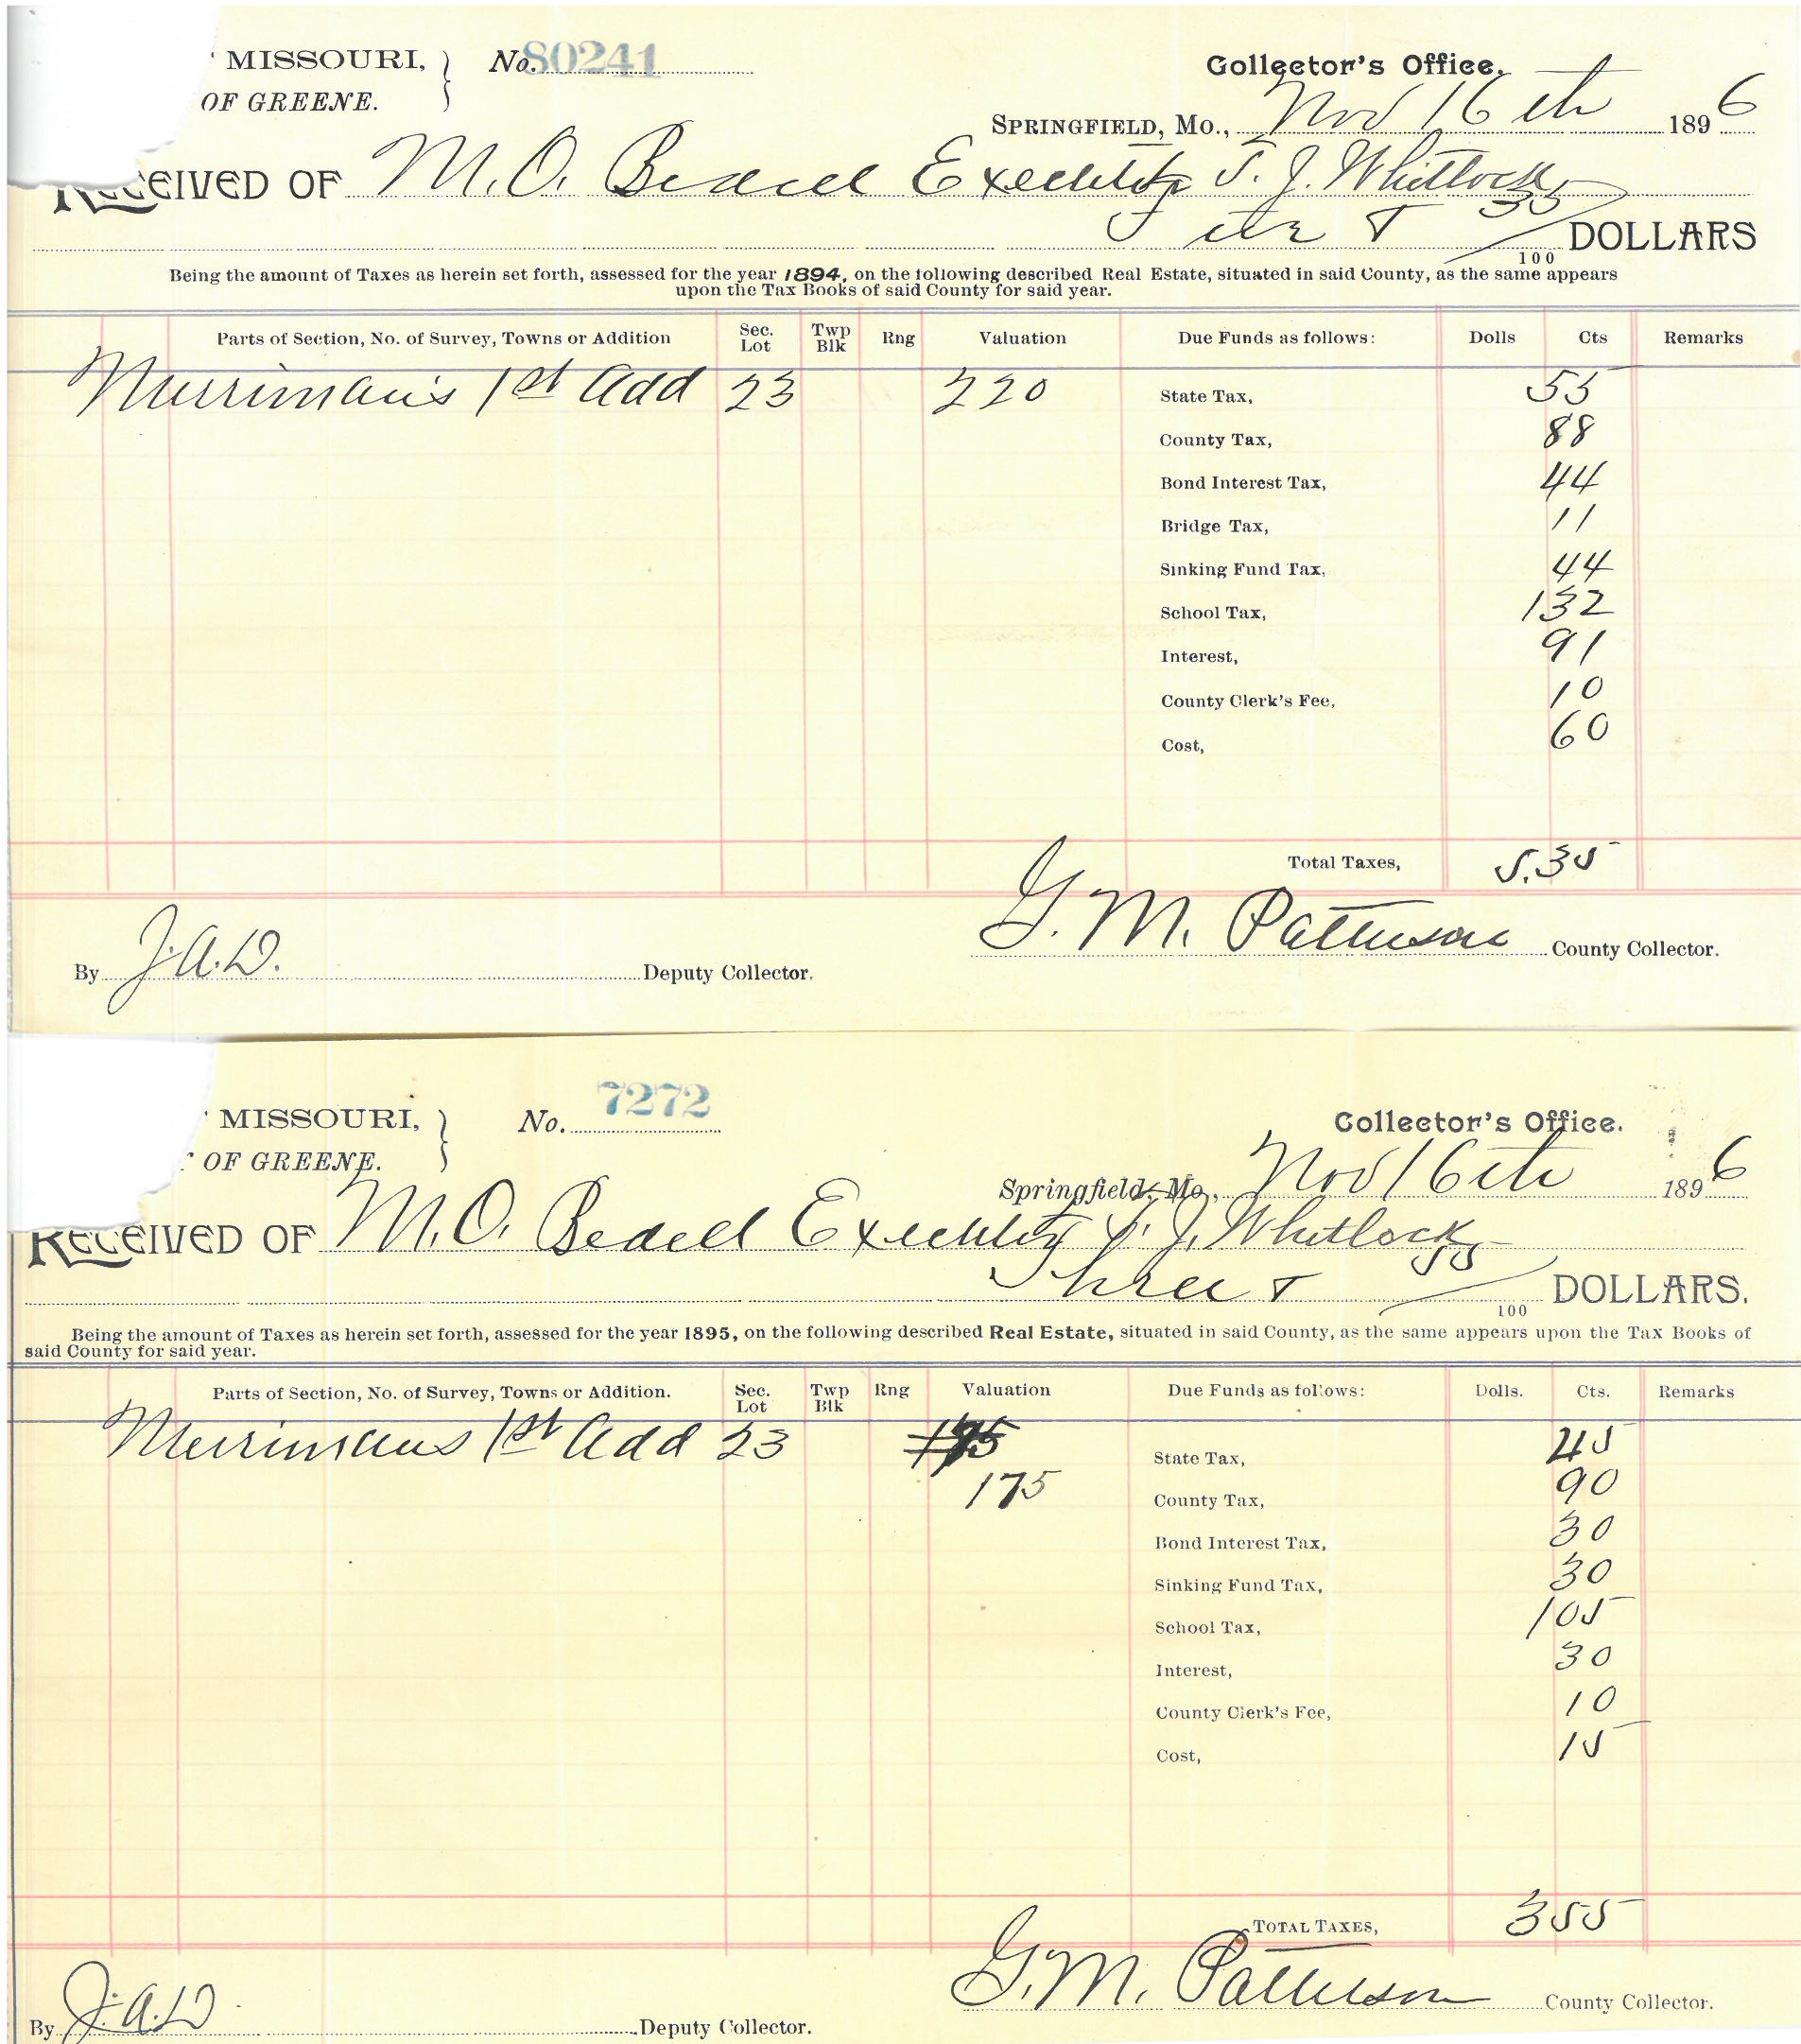 MISSOURI, } No. 80241 Collector's Office.
OF GREENE. SPRINGFIELD, Mo., Nov 16th 1896
RECEIVED OF M. O. Bedell T. J. Whitlock
Five & 35/100 DOLLARS
Being the amount of Taxes as herein set forth, assessed for the year 1894, on the following described Real Estate, situated in said County, as the same appears
upon the Tax Books of said County for said year.
Parts of Section, No. of Survey, Towns or Addition Sec. Lot Twp Blk Rng Valuation Due Funds as follows: Dolls Cts Remarks
Merriman's 1st Add 23 220 State Tax, 55
County Tax, 88
Bond Interest Tax, 44
Bridge Tax, 11
Sinking Fund Tax, 44
School Tax, 132
Interest, 91
County Clerk's Fee, 10
Cost, 60
Total Taxes, 5.35
G. M. Patterson County Collector.
By J.A.D. Deputy Collector.
MISSOURI, } No. 7272 Collector's Office.
OF GREENE. Springfield, Mo., Nov 16th 1896
RECEIVED OF M. O. Bedell T. J. Whitlock
Three & 55/100 DOLLARS.
Being the amount of Taxes as herein set forth, assessed for the year 1895, on the following described Real Estate, situated in said County, as the same appears upon the Tax Books of
said County for said year.
Parts of Section, No. of Survey, Towns or Addition. Sec. Lot Twp Blk Rng Valuation Due Funds as follows: Dolls. Cts. Remarks
Merrimans 1st Add 23 State Tax, 45
175 County Tax, 90
Bond Interest Tax, 30
Sinking Fund Tax, 30
School Tax, 105
Interest, 30
County Clerk's Fee, 10
Cost, 15
TOTAL TAXES, 355
G. M. Patterson County Collector.
By J.A.D. Deputy Collector.